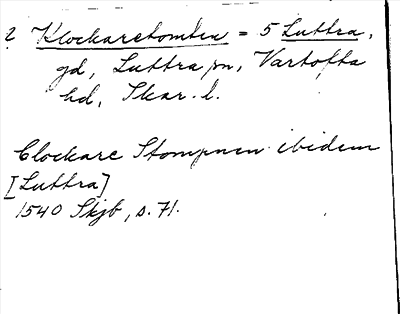 2 Klockaretomten = 5 Luttra,
gd, Luttra sn, Vartofta
hd, Skar. l.
Clockare Stompnen ibidem
[Luttra]
1540 Skjb, s. 71.